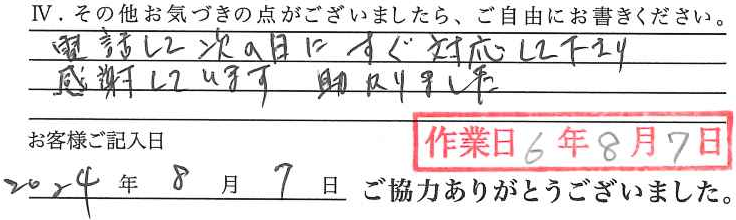 Ⅳ．その他お気づきの点がございましたら、ご自由にお書きください。
電話して次の日にすぐ対応して下さり
感謝しています 助かりました
お客様ご記入日
作業日 6年8月7日
2024年8月7日 ご協力ありがとうございました。